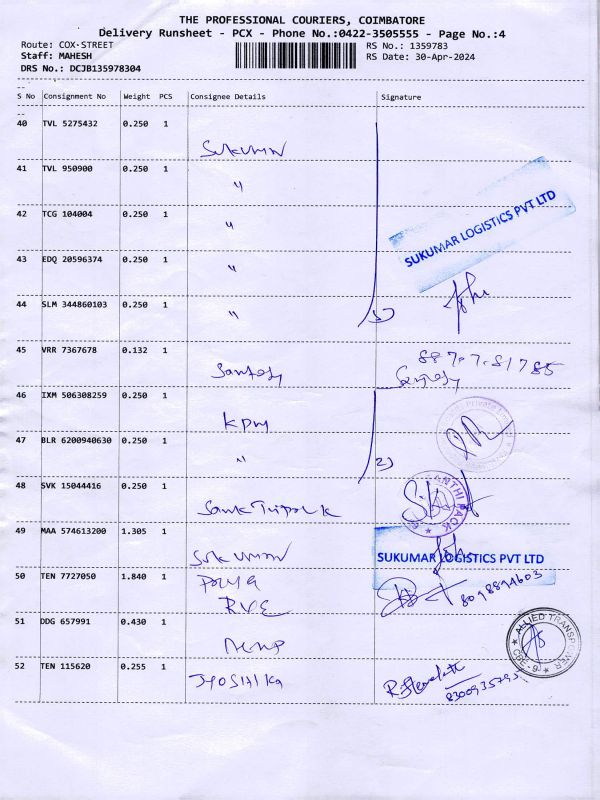 THE PROFESSIONAL COURIERS, COIMBATORE
Delivery Runsheet - PCX - Phone No.:0422-3505555 - Page No.:4
Route: COX-STREET
RS No.: 1359783
Staff: MAHESH
RS Date: 30-Apr-2024
DRS No.: DCJB135978304
S No Consignment No Weight PCS Consignee Details Signature
40 TVL 5275432 0.250 1
41 TVL 950900 0.250 1
"
42 TCG 104004 0.250 1
"
SUKUMAR LOGISTICS PVT LTD
43 EDQ 20596374 0.250 1
"
44 SLM 344860103 0.250 1
" 5)
45 VRR 7367678 0.132 1
Santosh
46 IXM 506308259 0.250 1
KPM
47 BLR 6200940630 0.250 1
" 2)
48 SVK 15044416 0.250 1
49 MAA 574613200 1.305 1
SUKUMAR LOGISTICS PVT LTD
50 TEN 7727050 1.840 1
Priya 8098894603
51 DDG 657991 0.430 1
ALLIED TRANSPOWER
CBE-9
52 TEN 115620 0.255 1
Jyoshika
8300935795